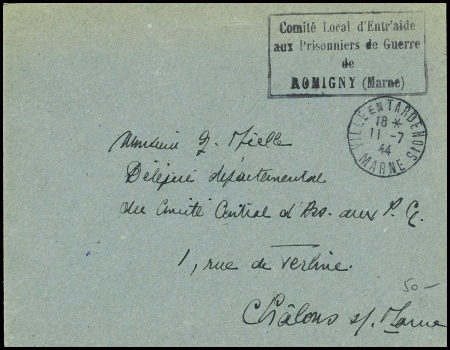 Comité Local d'Entr'aide
aux Prisonniers de Guerre
de
ROMIGNY (Marne)
VILLE EN TARDENOIS
18 *
11 -7
44
MARNE
Monsieur Mielle
Délégué départemental
du Comité Central d'Ass. aux P. G.
1, rue de
50-
Châlons s/. Marne